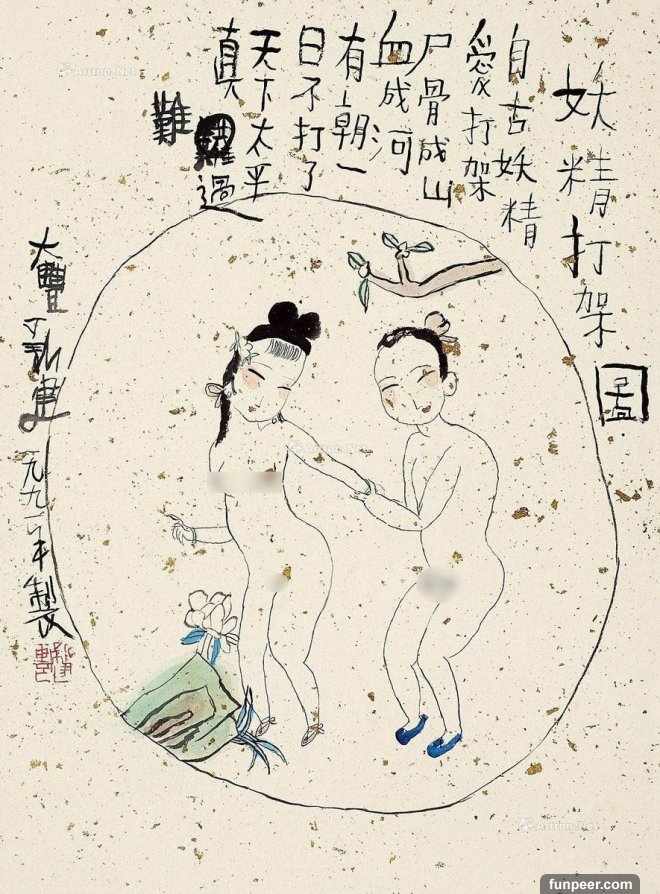 妖精打架圖
自古妖精
愛打架
尸骨成山
血成河
有朝一
日不打了
天下太平
真過
難
大豐新建一九九一年製
Artron.Net
funpeer.com